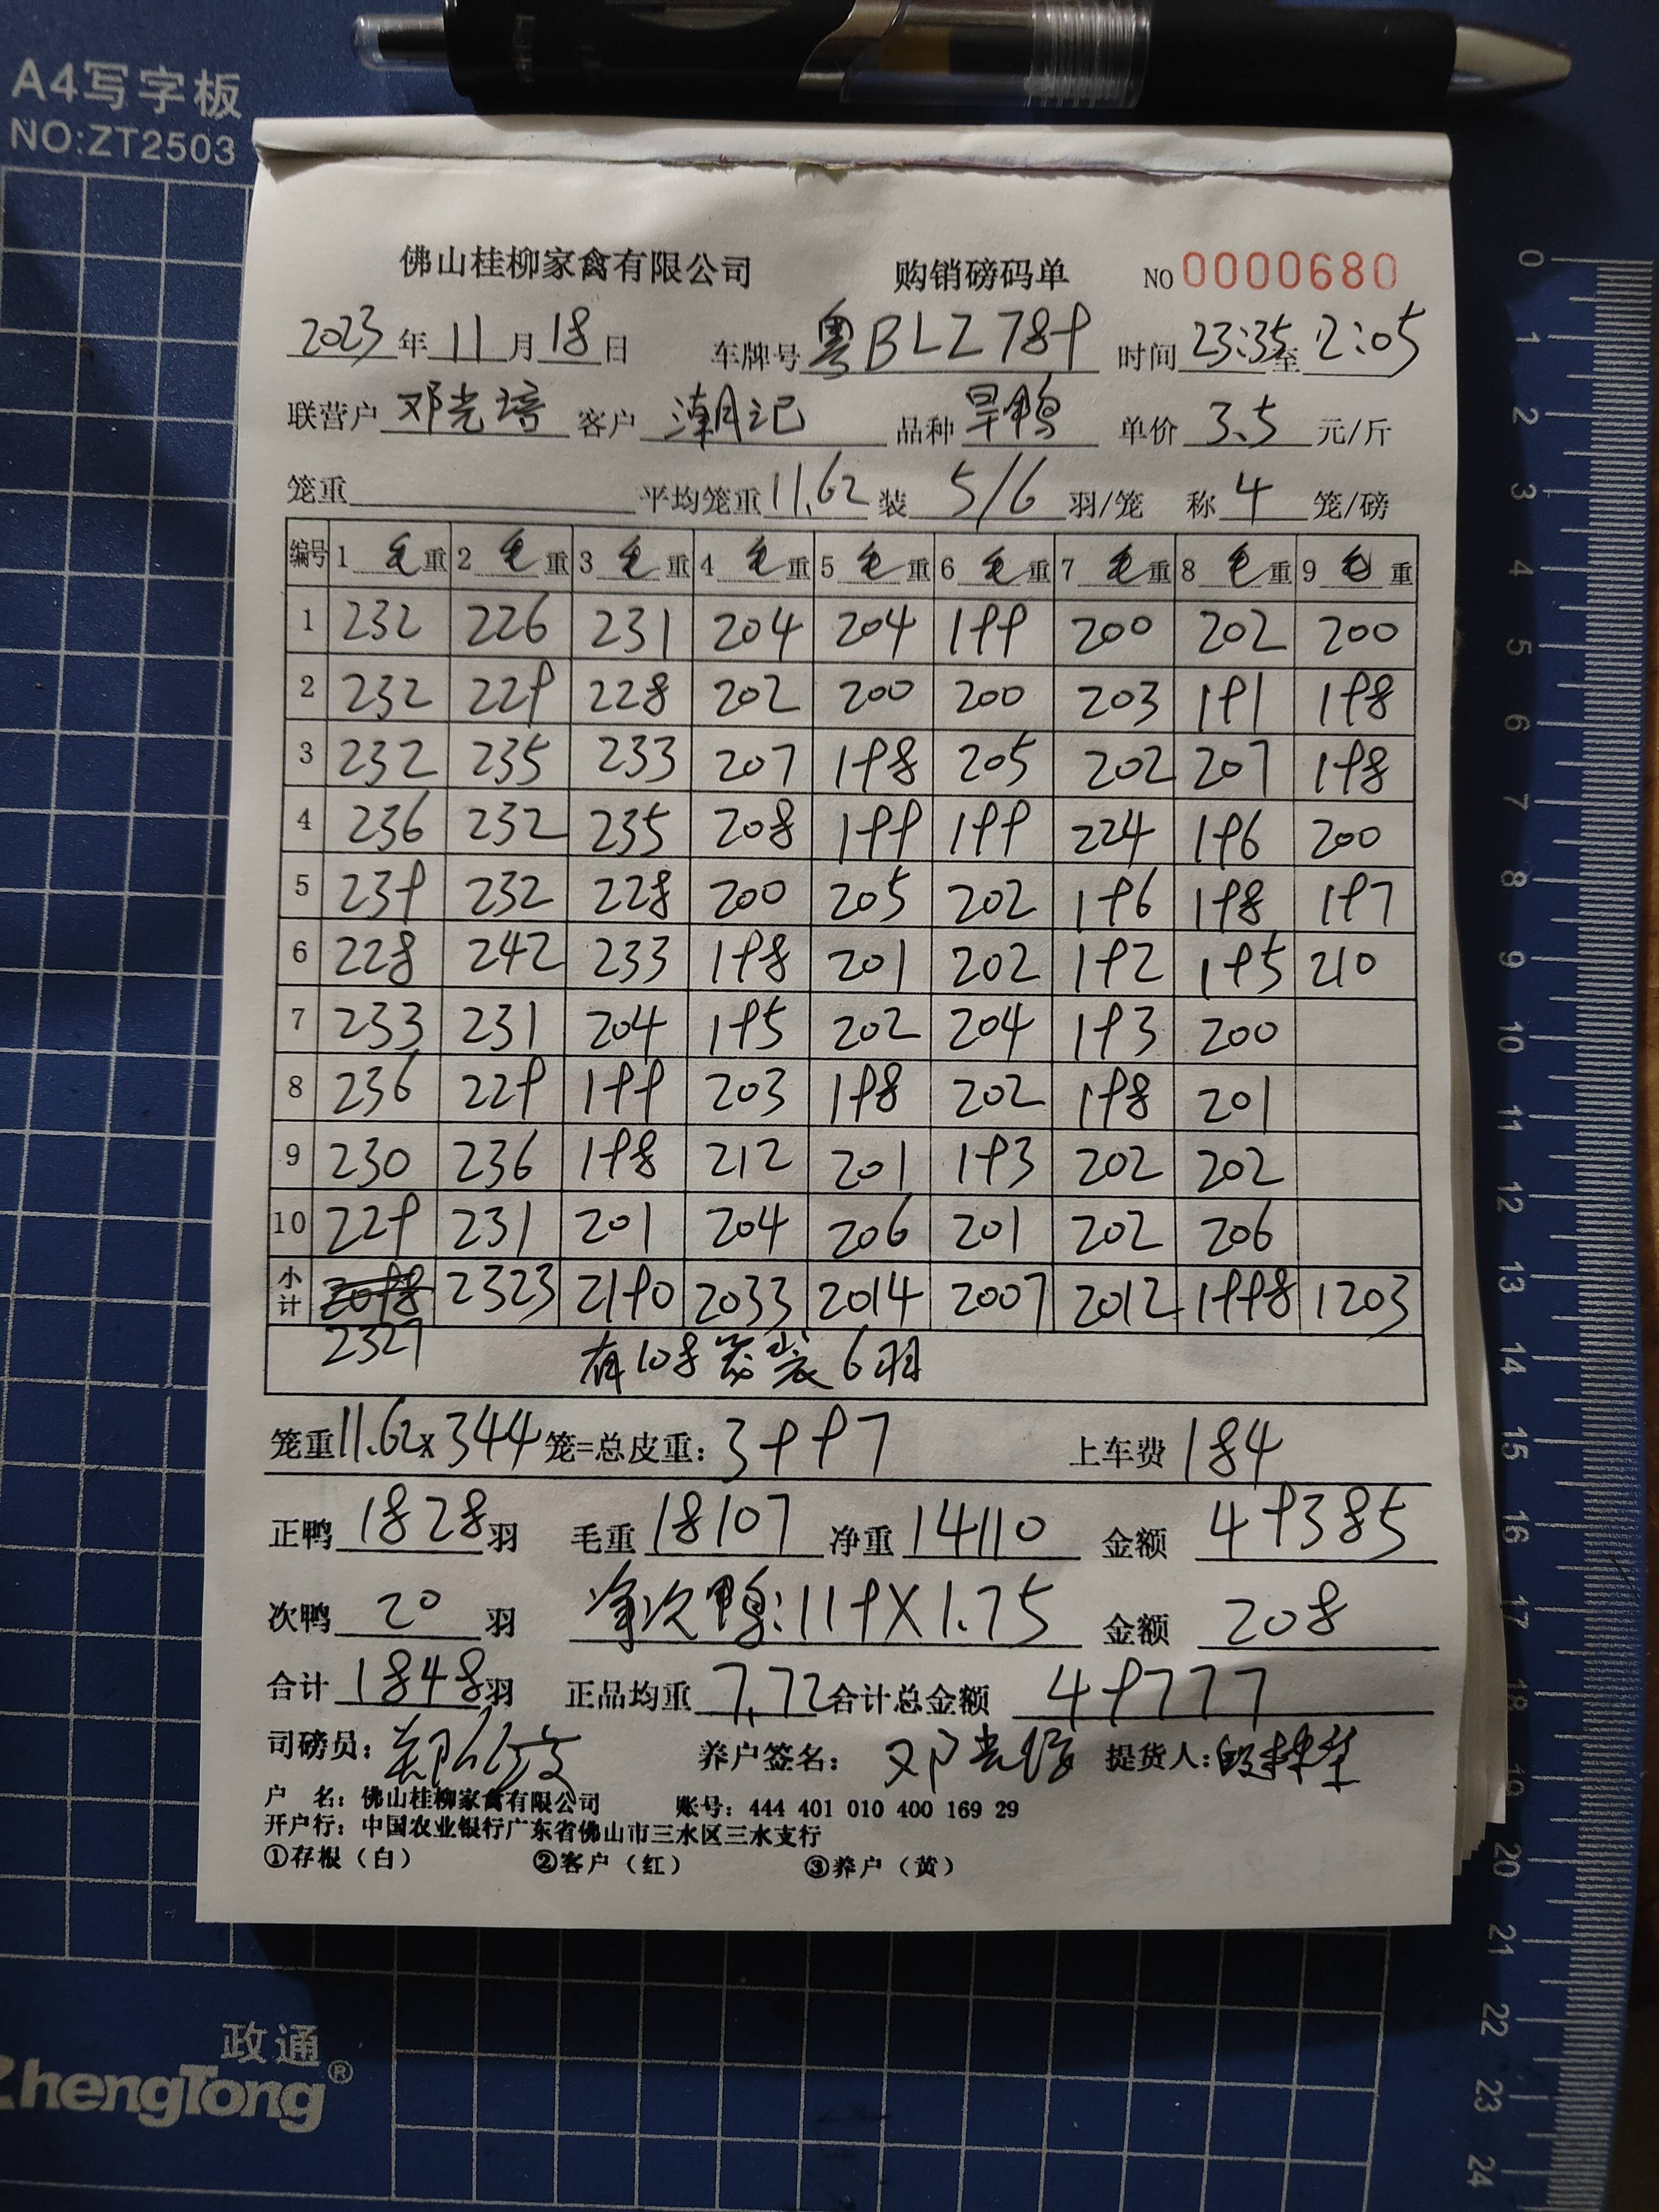 A4写字板
NO:ZT2503
佛山桂柳家禽有限公司 购销磅码单 NO 0000680
2023年11月18日 车牌号粤BLZ789 时间23:35至2:05
联营户 邓光培 客户 潮记 品种 旱鸭 单价 3.5 元/斤
笼重 平均笼重11.62 装 5/6 羽/笼 称 4 笼/磅
编号 1 毛重 2 毛重 3 毛重 4 毛重 5 毛重 6 毛重 7 毛重 8 毛重 9 毛重
1 232 226 231 204 204 199 200 202 200
2 232 229 228 202 200 200 203 191 198
3 232 235 233 207 198 205 202 207 198
4 236 232 235 208 199 199 224 196 200
5 239 232 228 200 205 202 196 198 197
6 228 242 233 198 201 202 192 195 210
7 233 231 204 195 202 204 193 200
8 236 229 199 203 198 202 198 201
9 230 236 198 212 201 193 202 202
10 229 231 201 204 206 201 202 206
小计 2098 2323 2190 2033 2014 2007 2012 1998 1203
2327 有108笼装6羽
笼重11.62x344笼=总皮重:3997 上车费184
正鸭1828羽 毛重18107 净重14110 金额 49385
次鸭 20 羽 净次鸭:119X1.75 金额 208
合计1848羽 正品均重7.72合计总金额 49777
司磅员: 养户签名: 邓光培 提货人:
户 名:佛山桂柳家禽有限公司 账号:444 401 010 400 169 29
开户行:中国农业银行广东省佛山市三水区三水支行
①存根(白) ②客户(红) ③养户(黄)
0
1
2
3
4
5
6
7
8
9
10
11
12
13
14
15
16
17
18
19
20
21
22
23
24
政通
ZhengTong®